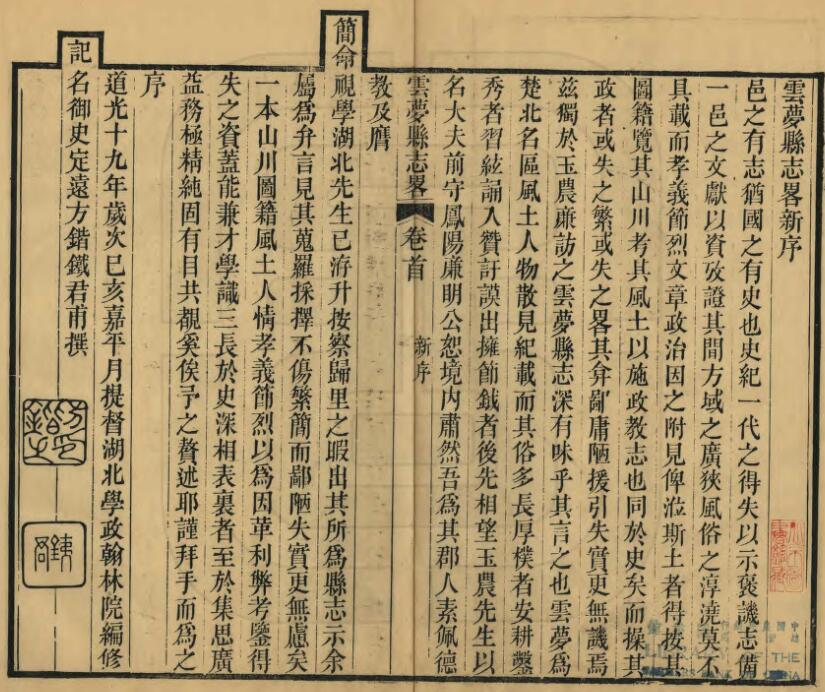 雲夢縣志畧新序
邑之有志猶國之有史也史紀一代之得失以示褒譏志備
一邑之文獻以資攷證其間方域之廣狹風俗之淳澆莫不
具載而孝義節烈文章政治因之附見俾涖斯土者得按其
圖籍覽其山川考其風土以施政教志也同於史矣而操其
政者或失之繁或失之畧其弇鄙庸陋援引失實更無譏焉
兹獨於玉農亷訪之雲夢縣志深有味乎其言之也雲夢爲
楚北名區風土人物散見紀載而其俗多長厚樸者安耕鑿
秀者習絃誦入贊訏謨出擁節鉞者後先相望玉農先生以
名大夫前守鳳陽亷明公恕境内肅然吾爲其郡人素佩德
雲夢縣志畧
卷首
新序
教及膺
簡命
視學湖北先生已洊升按察歸里之暇出其所爲縣志示余
屬爲弁言見其蒐羅採擇不傷繁簡而鄙陋失實更無慮矣
一本山川圖籍風土人情孝義節烈以爲因革利弊考鑒得
失之資蓋能兼才學識三長於史深相表裏者至於集思廣
益務極精純固有目共覩奚俟予之贅述耶謹拜手而爲之
序
道光十九年歲次己亥嘉平月提督湖北學政翰林院編修
記
名御史定遠方鍇鐵君甫撰